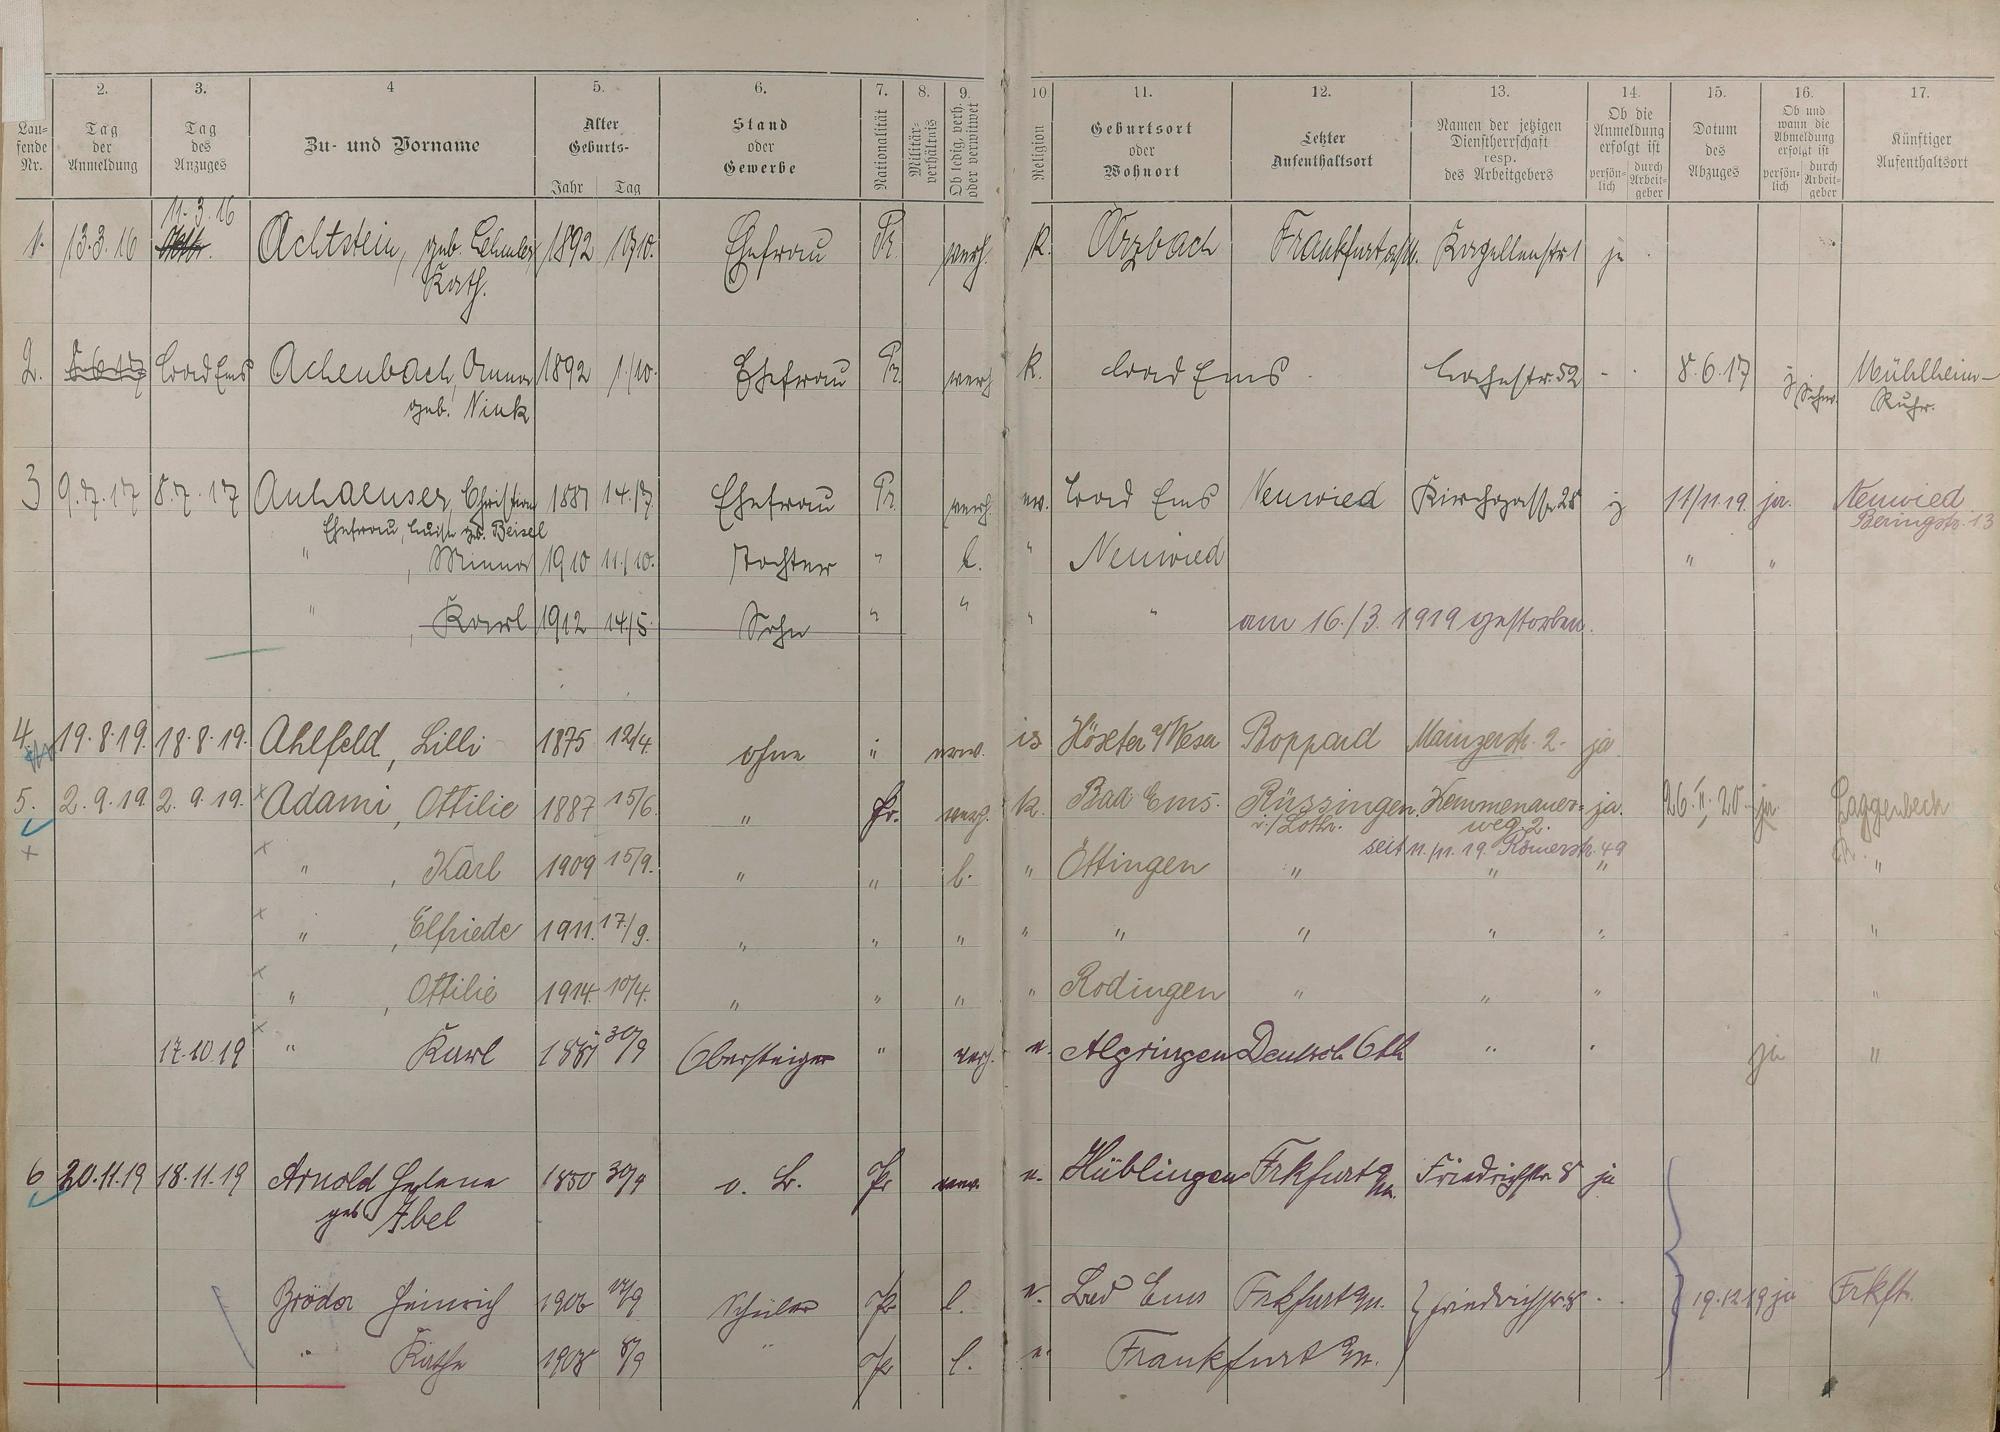 2. 3. 4 5. 6. 7. 8. 9. 10 11. 12. 13. 14. 15. 16. 17.
Lau-
fende
Nr.
Tag
der
Anmeldung
Tag
des
Anzuges
Zu- und Vorname
Alter
Geburts-
Jahr Tag
Stand
oder
Gewerbe
Nationalität
Militär-
verhältnis
Ob ledig, verh.
oder verwitwet
Religion
Geburtsort
oder
Wohnort
Letzter
Aufenthaltsort
Namen der jetzigen
Dienstherrschaft
resp.
des Arbeitgebers
Ob die
Anmeldung
erfolgt ist
persön-
lich
durch
Arbeit-
geber
Datum
des
Abzuges
Ob und
wann die
Abmeldung
erfolgt ist
persön-
lich
durch
Arbeit-
geber
Künftiger
Aufenthaltsort
11.3.16
1. 13.3.16 Achtstein, geb. 1892 Ehefrau Pr. verh. k. Arzbach Frankfurt a/M. Kapellenstr 1 ja
Kath.
2. Bad Ems Achenbach, Emma 1892 1./10. Ehefrau Pr. verh k. Bad Ems Lahnstr. 52 8.6.17 Mühlheim-
geb. Nink Ruhr.
3 9.7.17 8.7.17 Anhaeuser, Christian 1887 14./7. Ehefrau Pr. verh. ev. Bad Ems Neuwied Kirchgasse 28 j 11/11.19. ja. Neuwied
Ehefrau, Luise geb. Beisel Beringstr. 13
" , Minna 1910 11./10. Tochter " l. " Neuwied " "
" , Karl 1912 14/5 Sohn " " " " am 16./3. 1919 gestorben.
4. 19.8.19. 18.8.19. Ahlfeld, Lilli 1875 12/4. ohne " verw. is Höxter a/Weser Boppard Mainzerstr. 2. ja
5. 2.9.19. 2.9.19. Adami, Ottilie 1887 15/6. " Pr. verh. k. Bad Ems. Rüssingen Kemmenauer- ja. 26.II.20 ja Laggenbeck
i/Lothr. weg 2.
seit 11./11.19. Römerstr. 49
" , Karl 1909 15/9. " " l. " Öttingen " " " "
" , Elfriede 1911. 17./9. " " " " " " " " "
" , Ottilie 1914 10/4. " " " " Rodingen " " " "
17.10.19 " Karl 1887 30/9 Obersteiger " verh. e. Algringen Deutsch Oth " " ja "
6 20.11.19 18.11.19 Arnold Helene 1850 30/9 o. B. Pr verw. e. Hüblingen Frkfurt a/m. Friedrichstr 8 ja
geb Abel
Bröder Heinrich 1906 Schüler Pr l. e. Bad Ems Frkfurt a/m. Friedrichstr. 8 19.12.19 ja Frkft.
" Käthe 1908 8/9 " Pr l. e. Frankfurt a/m.